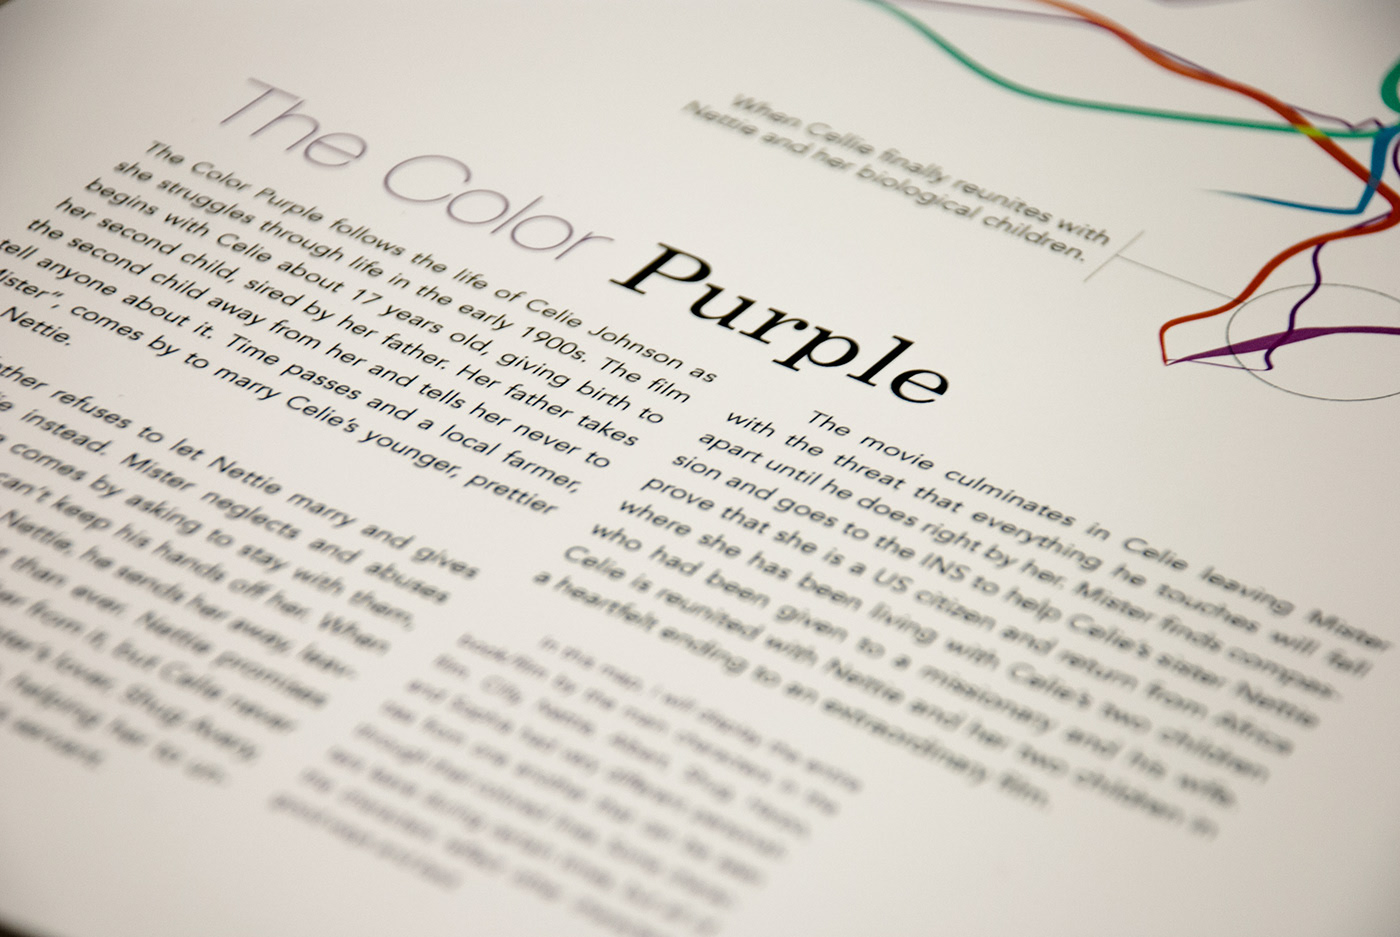 The Color Purple
When Cellie finally reunites with
Nettie and her biological children.
The Color Purple follows the life of Celie Johnson as
she struggles through life in the early 1900s. The film
begins with Celie about 17 years old, giving birth to
her second child, sired by her father. Her father takes
the second child away from her and tells her never to
tell anyone about it. Time passes and a local farmer,
“, comes by to marry Celie’s younger, prettier
Nettie.
refuses to let Nettie marry and gives
instead. Mister neglects and abuses
comes by asking to stay with them,
can’t keep his hands off her. When
Nettie, he sends her away, leav-
than ever. Nettie promises
from it, but Celie never
lover, Shug Avery,
helping her to
servant.
The movie culminates in Celie leaving Mister
with the threat that everything he touches will fall
apart until he does right by her. Mister finds compas-
sion and goes to the INS to help Celie’s sister Nettie
prove that she is a US citizen and return from Africa
where she has been living with Celie’s two children
who had been given to a missionary and his wife.
Celie is reunited with Nettie and her two children in
a heartfelt ending to an extraordinary film.
In this map, I will display the entire
book/film by the main characters in the